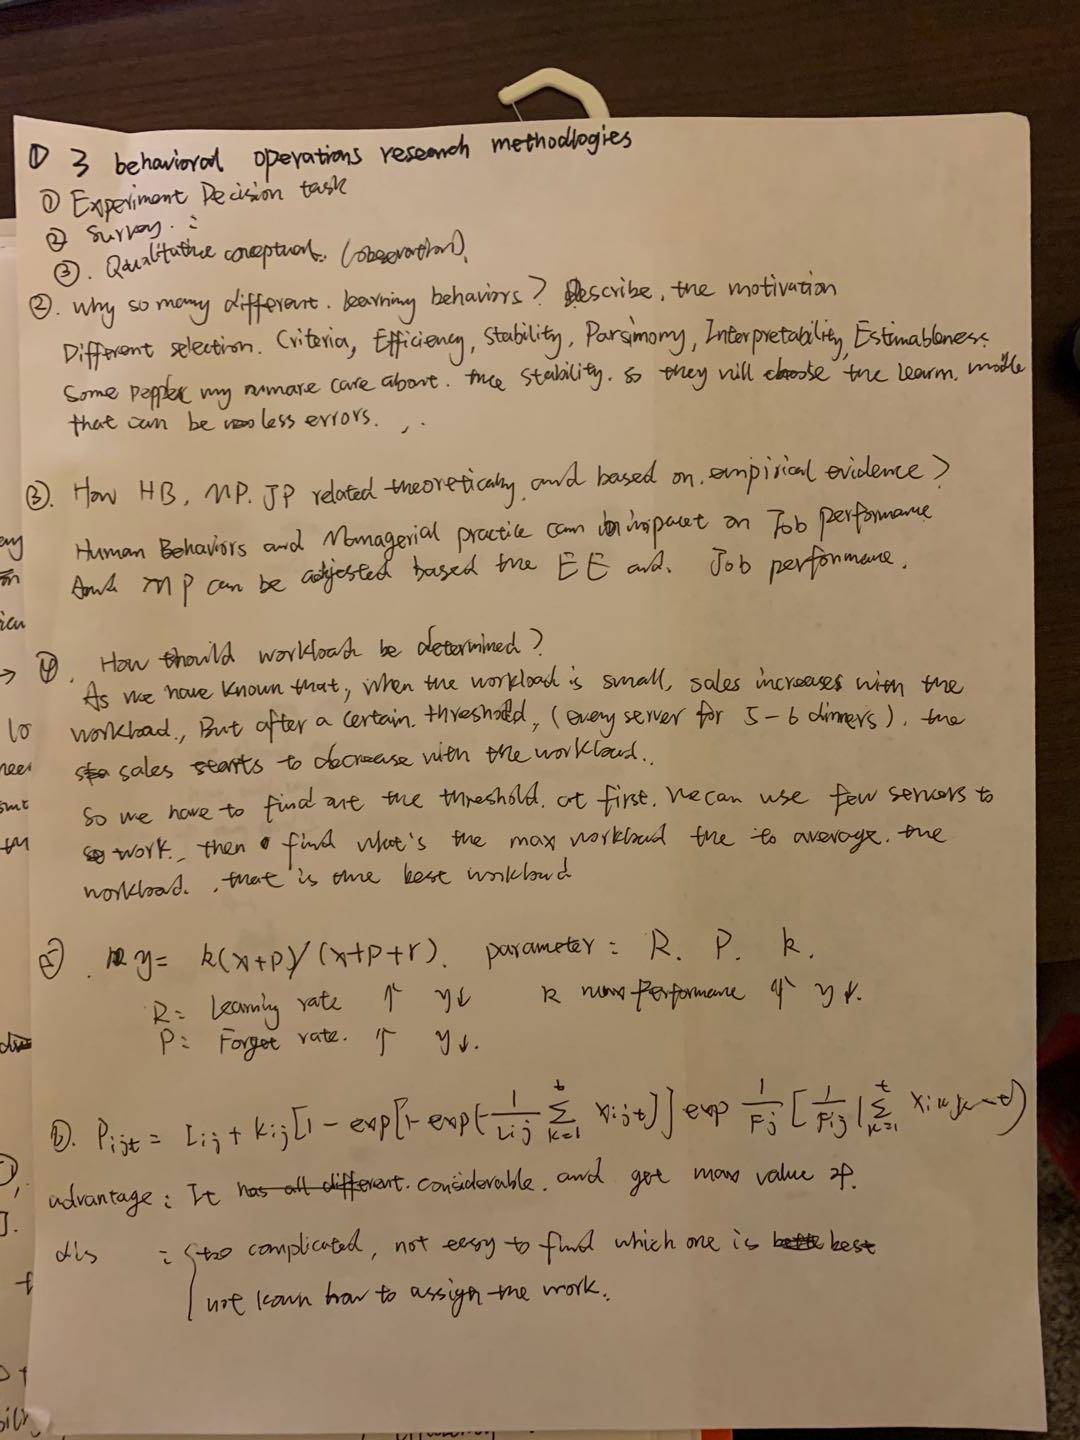 ① 3 behavioral operations research methodlogies
① Experiment Decision task
② Survey. :
③. Qualitative conceptual. (observation).
②. why so many different. learning behaviors? Describe, the motivation
Different selection. Criteria, Efficiency, Stability, Parsimony, Interpretability, Estimableness.
Some my care about. the stability. so they will choose the learn.
that can be less errors. , .
③. How HB, MP. JP related theoretically and based on. empirical evidence?
Human Behaviors and Managerial practice can impact on Job performance
And MP can be adjested based the EE and. Job performance.
④. How should workload be determined?
As we have known that, when the workload is small, sales increases with the
workload., But after a certain. threshold, (every server for 5-6 dinners). the
sales starts to decrease with the workload..
So we have to find out the threshold. at first. we can use few servers to
work., then find what's the max workload the to average. the
workload. , that is the best workload
⑤. y= k(x+p)/(x+p+r). parameter: R. P. k.
R= Learning rate ↑ y↓ k max performance ↑ y↓.
P= Forget rate. ↑ y↓.
⑥. Pijt = Lij + kij[1-exp[1-exp(-1/Lij t∑k=1 xijt)]] exp 1/Fj [1/Fij | t∑k=1
advantage: It has all different. considerable. and get max value of.
dis : too complicated, not easy to find which one is best
not how to assign the work.